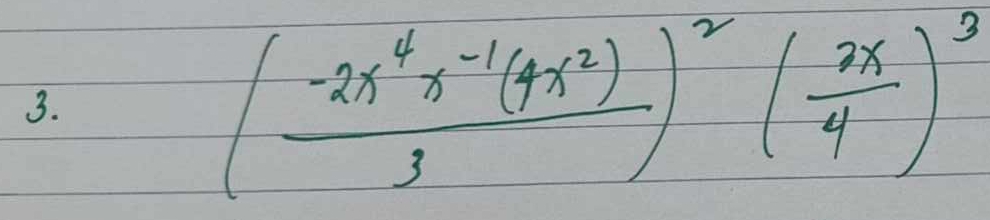 3. (-2x^4 x^-1 (4x^2) / 3)^2 (3x / 4)^3